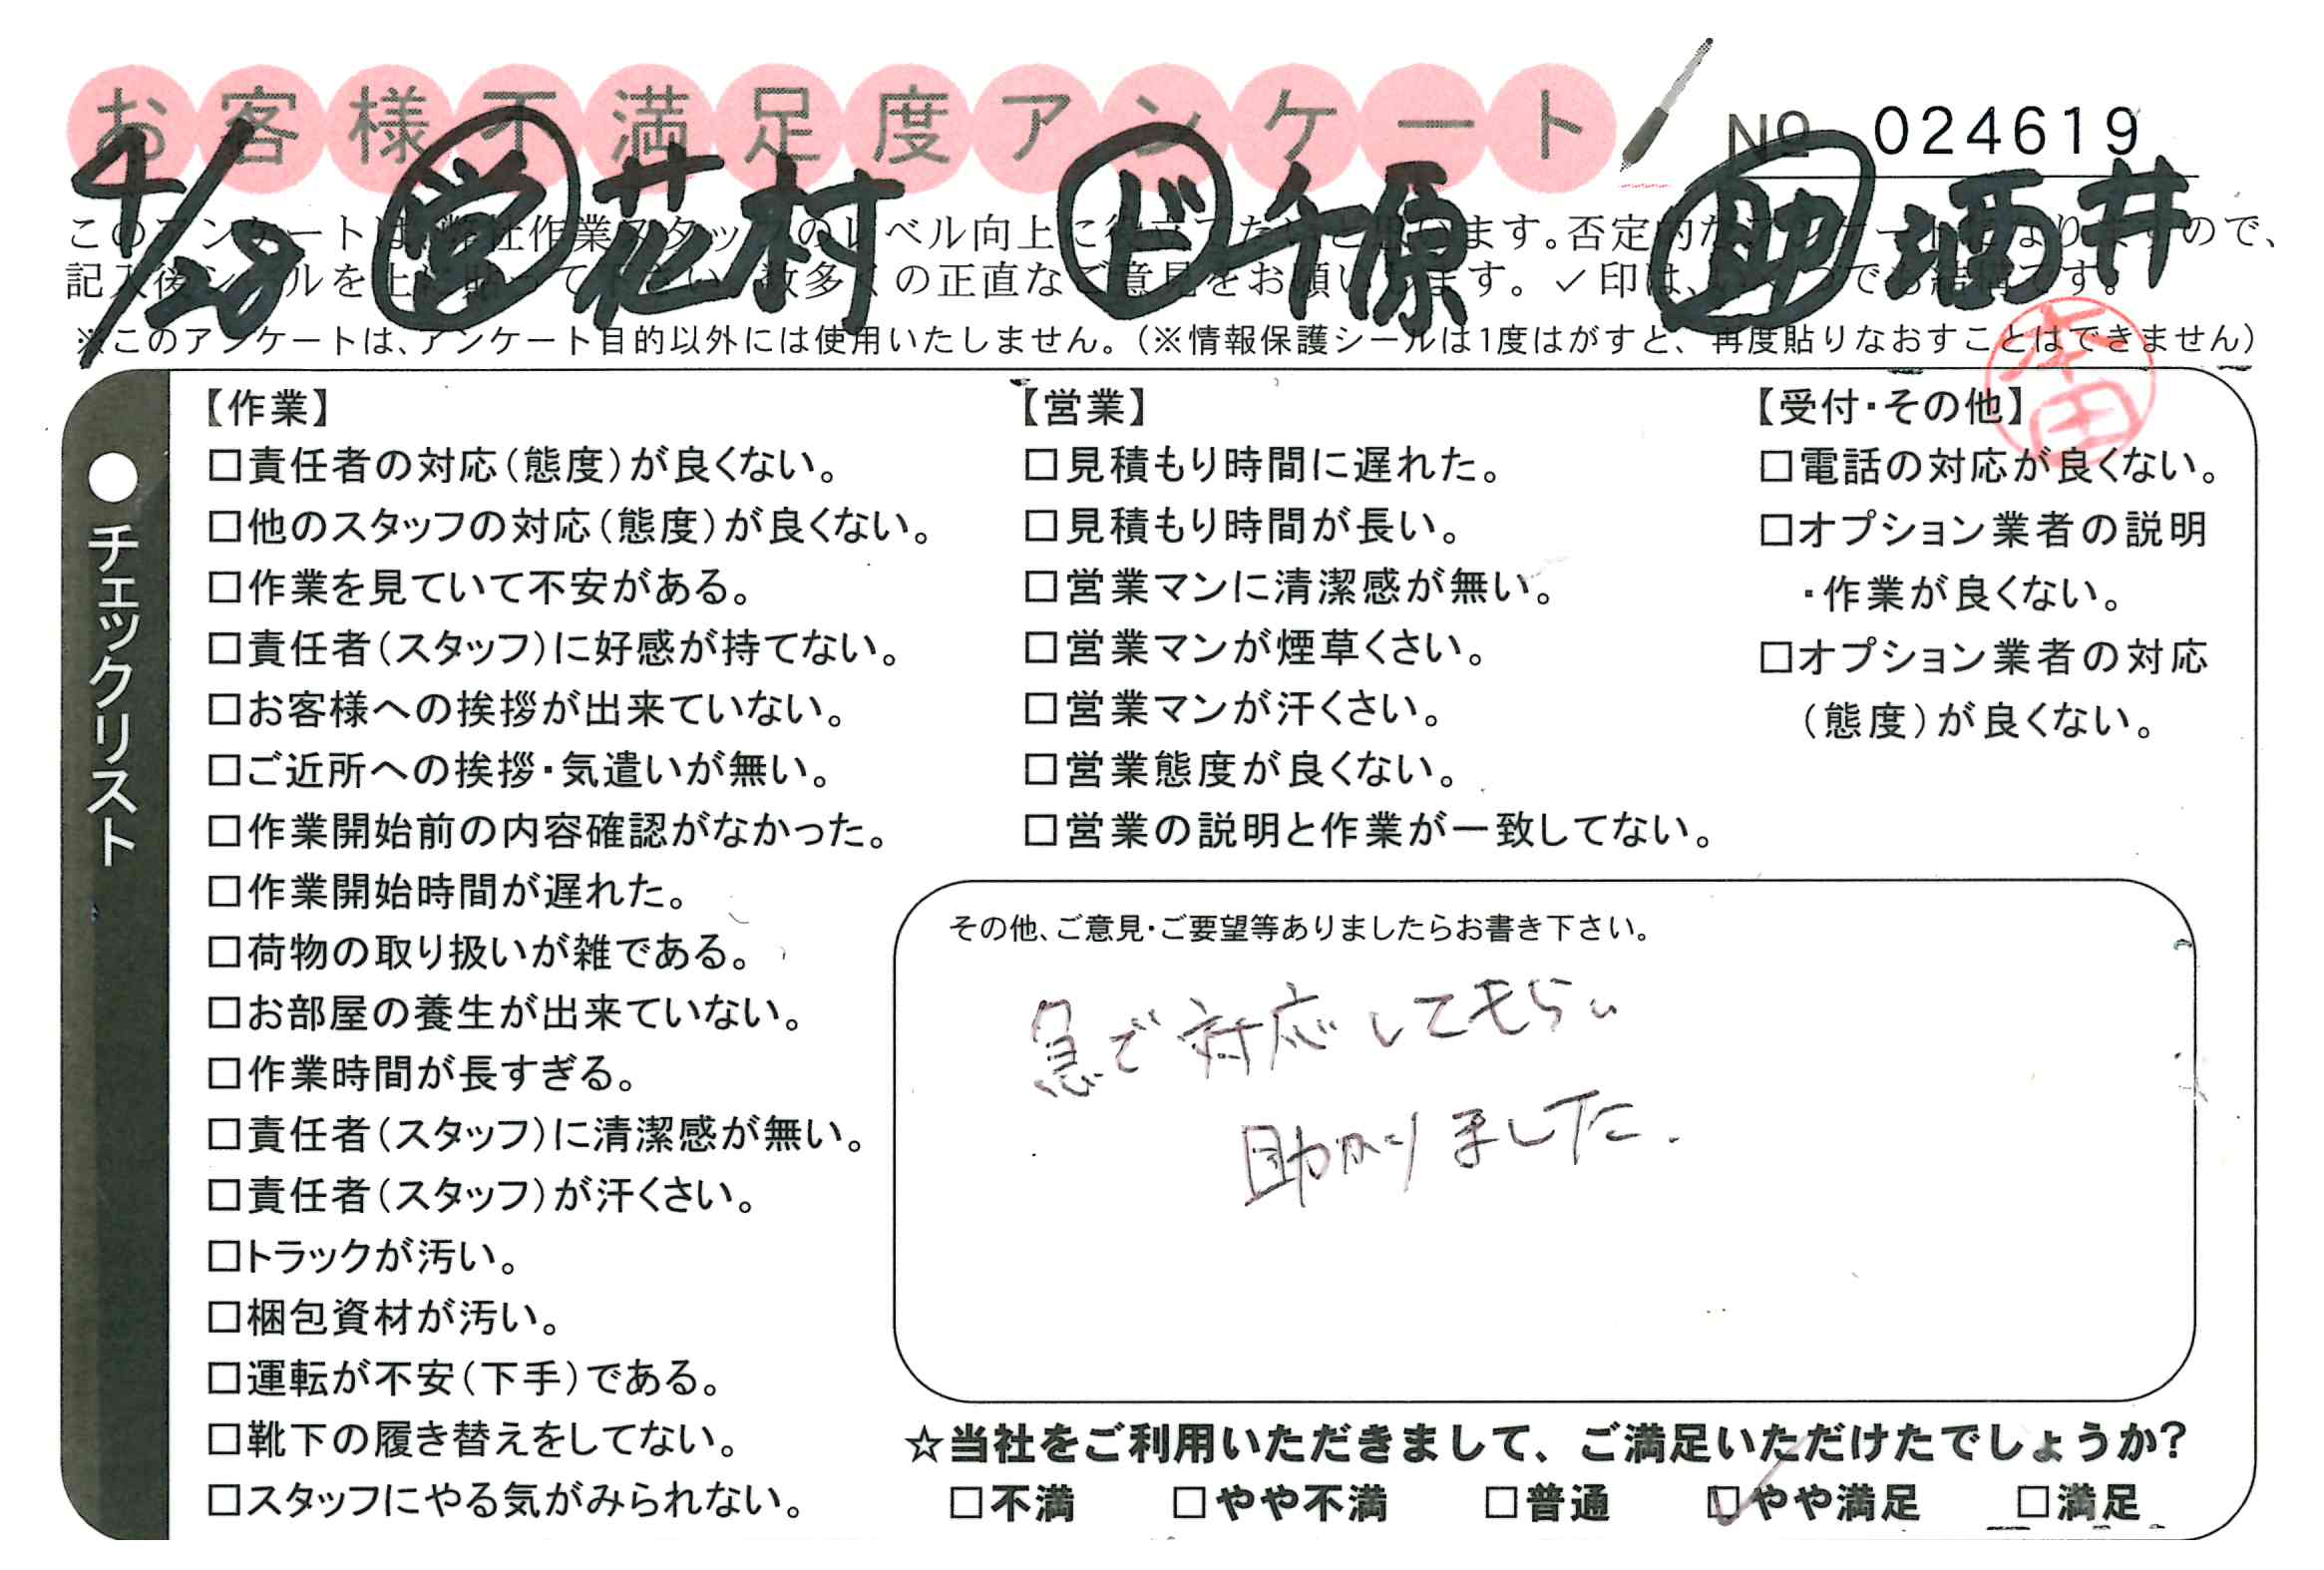 お客様不満足度アンケート
№ 024619
4/28 営 花村 ド 原 助 酒井
このアンケートは、弊社作業スタッフのレベル向上に役立てたいと思います。否定的なアンケートになりますので、
記入後シールを上に貼って下さい。数多くの正直なご意見をお願いします。✓印は、いくつでも結構です。
※このアンケートは、アンケート目的以外には使用いたしません。(※情報保護シールは1度はがすと、再度貼りなおすことはできません)
本田
●チェックリスト
【作業】
□責任者の対応(態度)が良くない。
□他のスタッフの対応(態度)が良くない。
□作業を見ていて不安がある。
□責任者(スタッフ)に好感が持てない。
□お客様への挨拶が出来ていない。
□ご近所への挨拶・気遣いが無い。
□作業開始前の内容確認がなかった。
□作業開始時間が遅れた。
□荷物の取り扱いが雑である。
□お部屋の養生が出来ていない。
□作業時間が長すぎる。
□責任者(スタッフ)に清潔感が無い。
□責任者(スタッフ)が汗くさい。
□トラックが汚い。
□梱包資材が汚い。
□運転が不安(下手)である。
□靴下の履き替えをしてない。
□スタッフにやる気がみられない。
【営業】
□見積もり時間に遅れた。
□見積もり時間が長い。
□営業マンに清潔感が無い。
□営業マンが煙草くさい。
□営業マンが汗くさい。
□営業態度が良くない。
□営業の説明と作業が一致してない。
【受付・その他】
□電話の対応が良くない。
□オプション業者の説明
・作業が良くない。
□オプション業者の対応
(態度)が良くない。
その他、ご意見・ご要望等ありましたらお書き下さい。
急で対応してもらい
助かりました.
☆当社をご利用いただきまして、ご満足いただけたでしょうか?
□不満 □やや不満 □普通 ☑やや満足 □満足